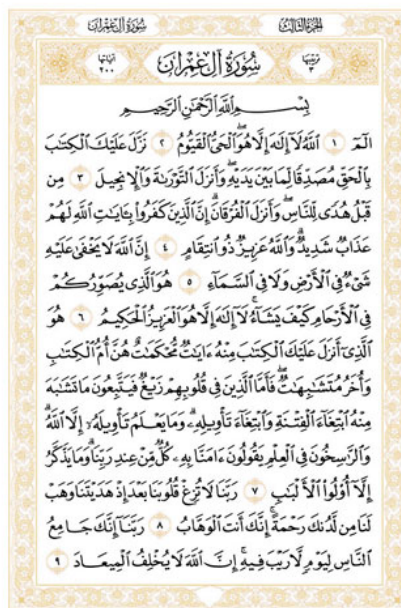 سُورَةُ آلِ عِمْرَان الجُزءُ الثَّالِثُ
ترتيبها ٣ سُورَةُ آلِ عِمْرَان آياتها ٢٠٠
بِسْمِ ٱللَّهِ ٱلرَّحْمَٰنِ ٱلرَّحِيمِ
الٓمٓ ١ ٱللَّهُ لَآ إِلَٰهَ إِلَّا هُوَ ٱلْحَىُّ ٱلْقَيُّومُ ٢ نَزَّلَ عَلَيْكَ ٱلْكِتَٰبَ
بِٱلْحَقِّ مُصَدِّقًا لِّمَا بَيْنَ يَدَيْهِ وَأَنزَلَ ٱلتَّوْرَىٰةَ وَٱلْإِنجِيلَ ٣ مِن
قَبْلُ هُدًى لِّلنَّاسِ وَأَنزَلَ ٱلْفُرْقَانَ ۗ إِنَّ ٱلَّذِينَ كَفَرُوا۟ بِـَٔايَٰتِ ٱللَّهِ لَهُمْ
عَذَابٌ شَدِيدٌ ۗ وَٱللَّهُ عَزِيزٌ ذُو ٱنتِقَامٍ ٤ إِنَّ ٱللَّهَ لَا يَخْفَىٰ عَلَيْهِ
شَىْءٌ فِى ٱلْأَرْضِ وَلَا فِى ٱلسَّمَآءِ ٥ هُوَ ٱلَّذِى يُصَوِّرُكُمْ
فِى ٱلْأَرْحَامِ كَيْفَ يَشَآءُ ۚ لَآ إِلَٰهَ إِلَّا هُوَ ٱلْعَزِيزُ ٱلْحَكِيمُ ٦ هُوَ
ٱلَّذِىٓ أَنزَلَ عَلَيْكَ ٱلْكِتَٰبَ مِنْهُ ءَايَٰتٌ مُّحْكَمَٰتٌ هُنَّ أُمُّ ٱلْكِتَٰبِ
وَأُخَرُ مُتَشَٰبِهَٰتٌ ۖ فَأَمَّا ٱلَّذِينَ فِى قُلُوبِهِمْ زَيْغٌ فَيَتَّبِعُونَ مَا تَشَٰبَهَ
مِنْهُ ٱبْتِغَآءَ ٱلْفِتْنَةِ وَٱبْتِغَآءَ تَأْوِيلِهِۦ ۗ وَمَا يَعْلَمُ تَأْوِيلَهُۥٓ إِلَّا ٱللَّهُ ۗ
وَٱلرَّٰسِخُونَ فِى ٱلْعِلْمِ يَقُولُونَ ءَامَنَّا بِهِۦ كُلٌّ مِّنْ عِندِ رَبِّنَا ۗ وَمَا يَذَّكَّرُ
إِلَّآ أُو۟لُوا۟ ٱلْأَلْبَٰبِ ٧ رَبَّنَا لَا تُزِغْ قُلُوبَنَا بَعْدَ إِذْ هَدَيْتَنَا وَهَبْ
لَنَا مِن لَّدُنكَ رَحْمَةً ۚ إِنَّكَ أَنتَ ٱلْوَهَّابُ ٨ رَبَّنَآ إِنَّكَ جَامِعُ
ٱلنَّاسِ لِيَوْمٍ لَّا رَيْبَ فِيهِ ۚ إِنَّ ٱللَّهَ لَا يُخْلِفُ ٱلْمِيعَادَ ٩